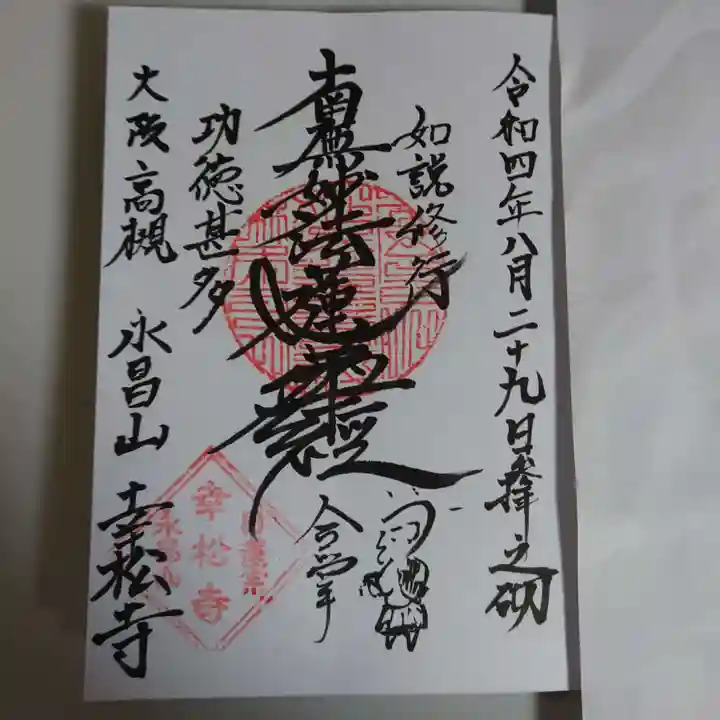 令和四年八月二十九日拝之砌
如説修行
南無妙法蓮華経
功徳甚多
合掌
大阪高槻 永昌山 幸松寺
幸松寺